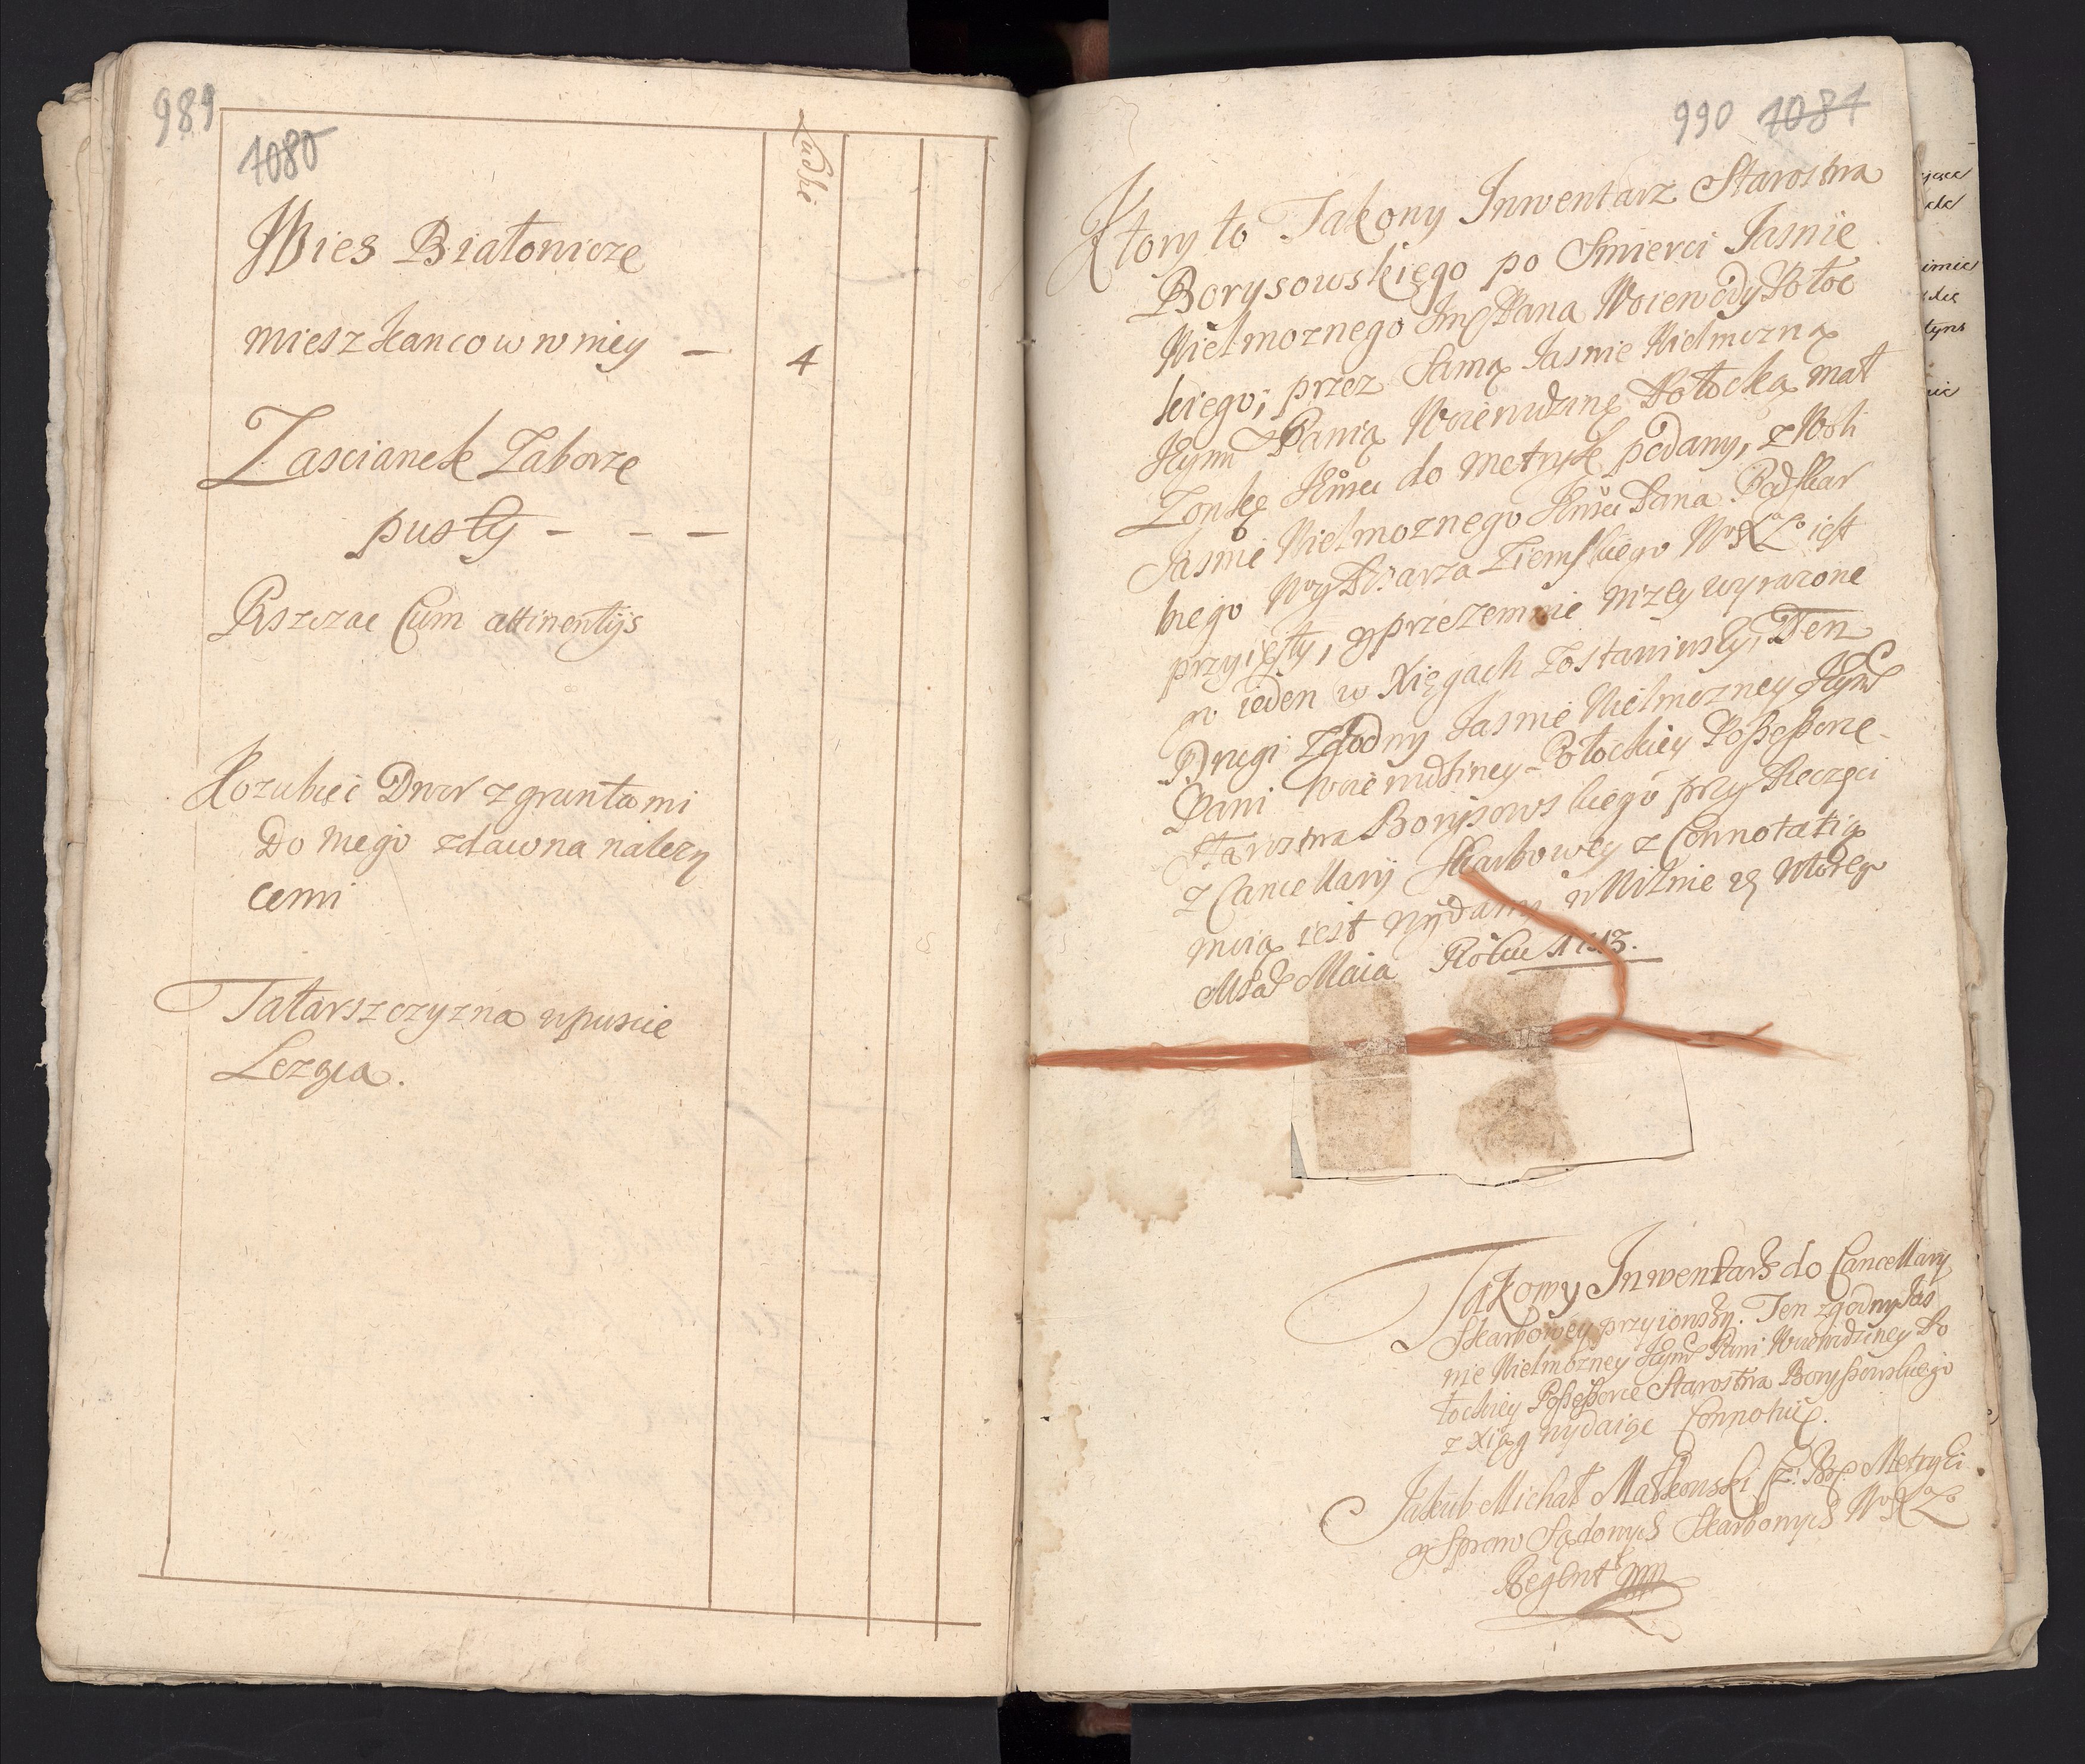 989
1080
Ludzi
Wies Białonicze
mieszkancow w niey — 4
Zascianek Zaborze
pusty - - -
Pszczae Cum attinentijs
Kozubiec Dwor z gruntami
Do niego zdawna należą
cemi
Tatarszczyzna w puscie
Leząca.
990 1081
Ktory to Takowy Inwentarz Starostwa
Borysowskiego po Smierci Jasnie
Wielmoznego Jmę Pana Woiewody Połoc
kiego; przez Samą Jasnie Wielmozną
Jeymę Panią Woiewodzinę Połocką mał
Zonkę Jmsci do Metryk podany, z Woli
Jasnie Wielmoznego Jmsci Pana Podskar
biego Ziemskiego W° X° L° iest
przyięty, y przezemnie nizey wyrazone
ieden w Xięgach zostawiwszy, Ten
Drugi Zgodny Jasnie Wielmozney Jeymę
Pani Woiewodziney Połockiey Possessorce
Starostwa Borysowskiego przy Pieczęci
z Cancellaryi Skarbowey z Connotatią
moią iest wydany w Wilnie 29 Wtorego
Msca Maia Roku 1713.
Takowy Inwentarz do Cancellaryi
Skarbowey przyiowszy. Ten zgodny Jas
nie Wielmozney Jeymę Pani Woiewodziney Po
łockiey Possessorce Starostwa Borysowskiego
z Xiąg wydaiąc Connotuię.
Jakub Michał Małkowski Metryki
y Spraw Sądowych Skarbowych W° X° L°
Regent mp